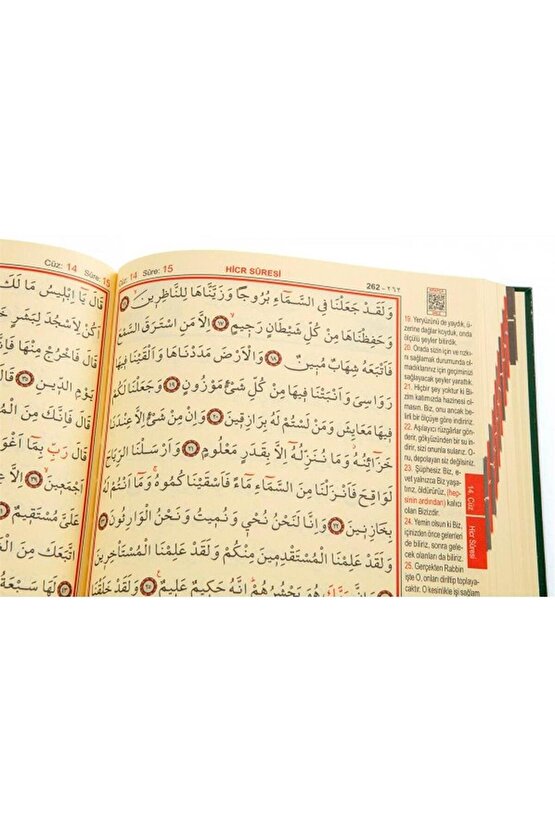 Cüz: 14 Sûre: 15
قَالَ يَٓا اِبْلٖيسُ مَا لَكَ
اَكُنْ لِاَسْجُدَ لِبَشَرٍ
قَالَ فَاخْرُجْ مِنْهَا
يَوْمِ الدّٖينِ ﴿٣٥﴾ قَالَ
قَالَ فَاِنَّكَ مِنَ
قَالَ رَبِّ بِمَٓا اَغْوَ
اَجْمَعٖينَ ﴿٣٩﴾
عَلَيَّ مُسْتَقٖيمٌ
اتَّبَعَكَ مِنَ
لَهَا سَبْعَةُ
Cüz: 14 Sûre: 15 HİCR SÛRESİ 262 - ٢٦٢
وَلَقَدْ جَعَلْنَا فِي السَّمَٓاءِ بُرُوجًا وَزَيَّنَّاهَا لِلنَّاظِرٖينَ ﴿١٦﴾
وَحَفِظْنَاهَا مِنْ كُلِّ شَيْطَانٍ رَجٖيمٍ ﴿١٧﴾ اِلَّا مَنِ اسْتَرَقَ السَّمْعَ
فَاَتْبَعَهُ شِهَابٌ مُبٖينٌ ﴿١٨﴾ وَالْاَرْضَ مَدَدْنَاهَا وَاَلْقَيْنَا فٖيهَا
رَوَاسِيَ وَاَنْبَتْنَا فٖيهَا مِنْ كُلِّ شَيْءٍ مَوْزُونٍ ﴿١٩﴾ وَجَعَلْنَا لَكُمْ
فٖيهَا مَعَايِشَ وَمَنْ لَسْتُمْ لَهُ بِرَازِقٖينَ ﴿٢٠﴾ وَاِنْ مِنْ شَيْءٍ اِلَّا عِنْدَنَا
خَزَٓائِنُهُ وَمَا نُنَزِّلُهُٓ اِلَّا بِقَدَرٍ مَعْلُومٍ ﴿٢١﴾ وَاَرْسَلْنَا الرِّيَاحَ
لَوَاقِحَ فَاَنْزَلْنَا مِنَ السَّمَٓاءِ مَٓاءً فَاَسْقَيْنَاكُمُوهُ وَمَٓا اَنْتُمْ لَهُ
بِخَازِنٖينَ ﴿٢٢﴾ وَاِنَّا لَنَحْنُ نُحْيٖ وَنُمٖيتُ وَنَحْنُ الْوَارِثُونَ ﴿٢٣﴾
وَلَقَدْ عَلِمْنَا الْمُسْتَقْدِمٖينَ مِنْكُمْ وَلَقَدْ عَلِمْنَا الْمُسْتَأْخِرٖينَ
وَاِنَّ رَبَّكَ هُوَ يَحْشُرُهُمْ اِنَّهُ حَكٖيمٌ عَلٖيمٌ ﴿٢٥﴾ وَلَقَدْ خَلَقْنَا
19. Yeryüzünü de yaydık, ü-
zerine dağlar koyduk, onda
ölçülü şeyler bitirdik.
20. Orada sizin için ve rızkı-
nı sağlamak durumunda ol-
madıklarınız için geçiminizi
sağlayacak şeyler yarattık.
21. Hiçbir şey yoktur ki Bi-
zim katımızda hazinesi ol-
masın. Biz, onu ancak be-
lirli bir ölçüye göre indiririz.
22. Aşılayıcı rüzgârlar gön-
derir, gökyüzünden bir su in-
dirir, sizi onunla sularız. O-
nu, depolayan siz değilsiniz.
23. Şüphesiz Biz, e-
vet yalnızca Biz yaşa-
tırız, öldürürüz, (hep-
sinin ardından) kalıcı
olan Bizizdir.
24. Yemin olsun ki Biz,
içinizden önce gelenleri
de biliriz, sonra gele-
cek olanları da biliriz.
25. Gerçekten Rabbin
işte O, onları diriltip toplaya-
caktır. O kesinlikle işi sağlam
14. Cüz
Hicr Sûresi